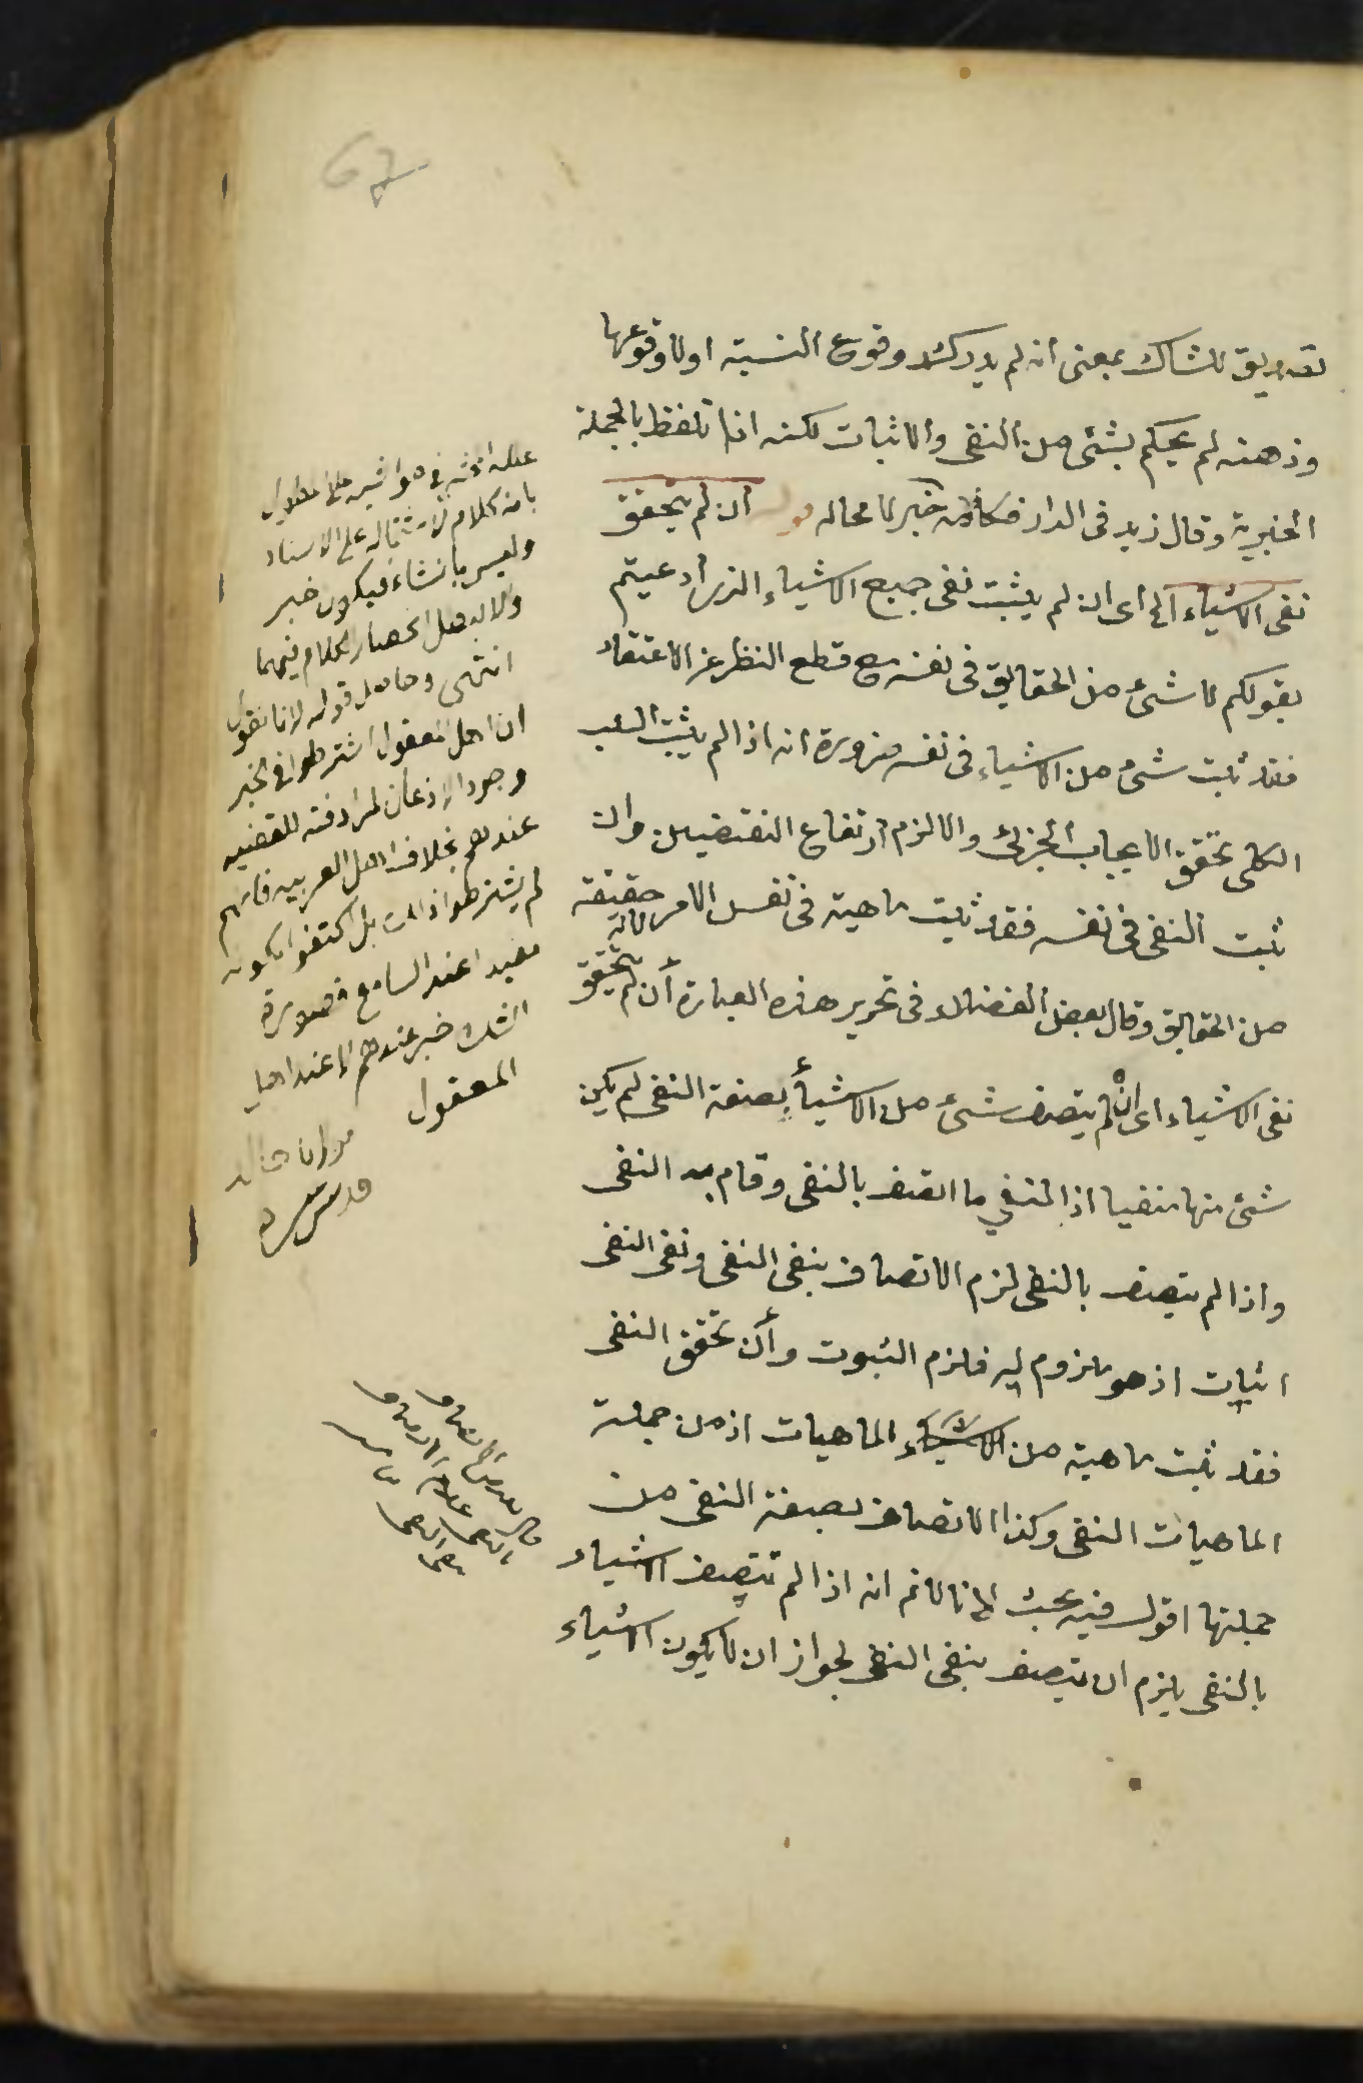 تصديق للشاك بمعنى انه لم يدرك وقوع النسبة اولا وقوعها
وذهنه لم يحكم بشئ من النفى والاثبات لكنه اذا تلفظ بالجملة
الخبرية وقال زيد فى الدار فكلامه خبر لا محاله قوله ان لم يتحقق
نفى الاشياء الخ اى ان لم يثبت نفى جميع الاشياء الذى ادعيتم
بقولكم لا شئ من الحقايق فى نفسه مع قطع النظر عن الاعتقاد
فقد ثبت شئ من الاشياء فى نفسه ضرورة انه اذا لم يثبت السلب
الكلى تحقق الايجاب الجزئى والا لزم ارتفاع النقيضين وان
ثبت النفى فى نفسه فقد ثبت ماهية فى نفس الامر لانه حقيقة
من الحقايق وقال بعض الفضلاء فى تحرير هذه العبارة أن لم يتحقق
نفى الاشياء اى ان لم يتصف شئ من الاشياء بصفة النفى لم يكن
شئ منها منفيا اذ المنفي ما اتصف بالنفى وقام به النفى
واذا لم يتصف بالنفى لزم الاتصاف بنفى النفى ونفى النفى
اثبات اذ هو ملزوم له فلزم الثبوت وأن تحقق النفى
فقد ثبت ماهية من الماهيات اذ من جملة
الماهيات النفى وكذا الاتصاف بصفة النفى من
جملتها اقول فيه بحث لانا لانم انه اذا لم تتصف الاشياء
بالنفى يلزم ان يتصف بنفى النفى لجواز ان لا يكون الاشياء
بانه كلام لاشتماله على الاسناد
وليس بانشاء فيكون خبر
والا لبطل انحصار الكلام فيهما
انتهى وحاصل قوله لانا نقول
ان اهل المعقول اشترطوا فى الخبر
وجود الاذعان لمرادفته للقضيه
عندهم بخلاف اهل العربيه فانهم
لم يشترطوا ذالك بل اكتفوا بكونه
مفيدا عند السامع فصورة
الشك خبر عندهم لا عند اهل
المعقول
مولانا خالد
قدس سره